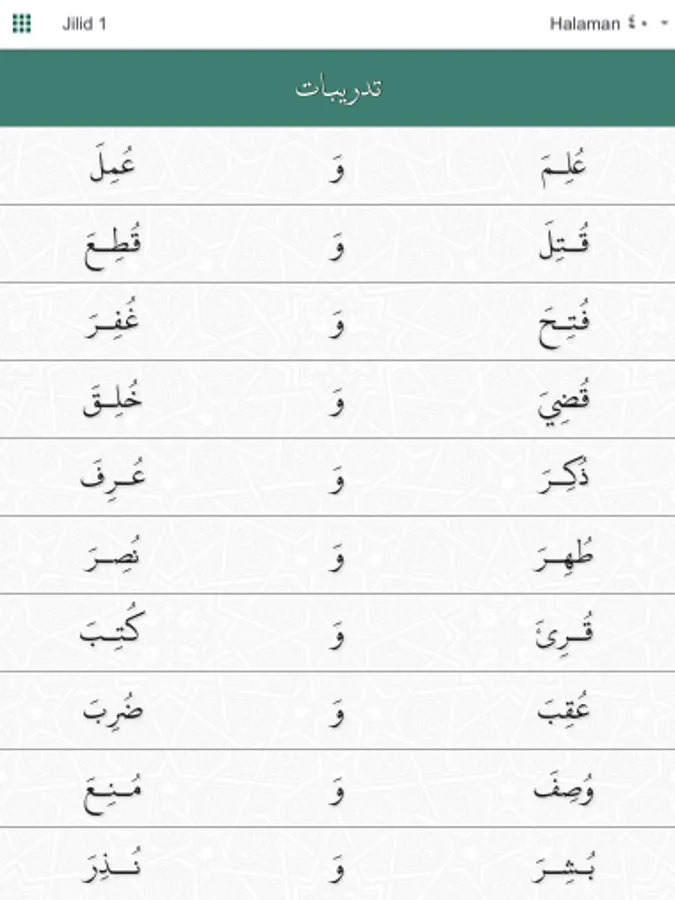 Jilid 1 Halaman ٤٠
تدريبات
عُلِـمَ وَ عُمِلَ
قُـتِلَ وَ قُطِـعَ
فُتِـحَ وَ غُفِـرَ
قُضِيَ وَ خُلِـقَ
ذُكِـرَ وَ عُـرِفَ
طُهِـرَ وَ نُصِـرَ
قُـرِئَ وَ كُتِـبَ
عُقِبَ وَ ضُرِبَ
وُصِفَ وَ مُـنِـعَ
بُـشِـرَ وَ نُـذِرَ